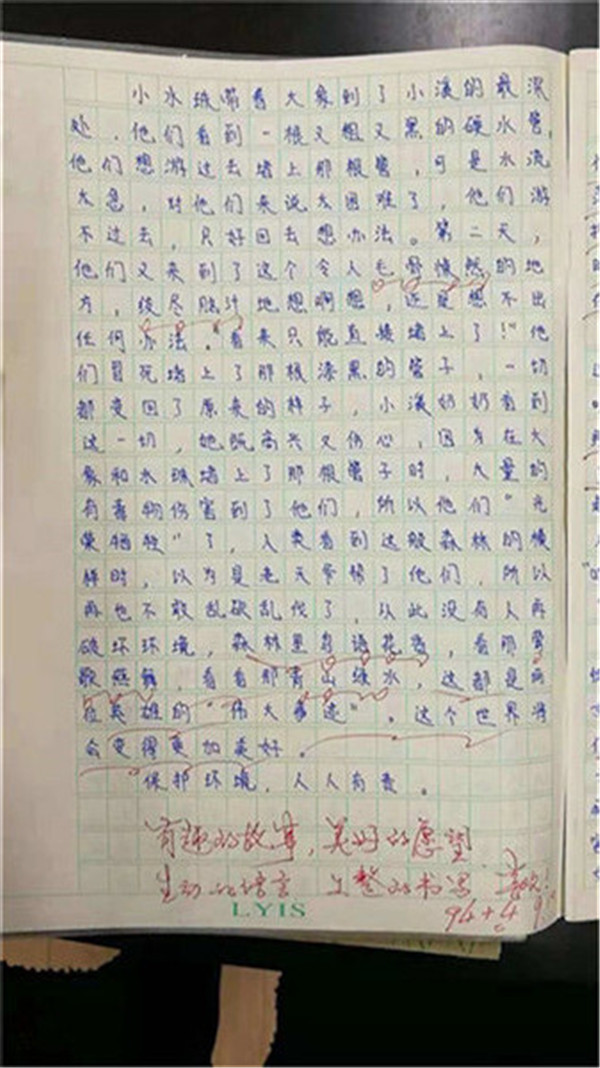 小水珠带着大象到了小溪的最深
处，他们看到一根又粗又黑的硬水管，
他们想游过去堵上那根管，可是水流
太急，对他们来说太困难了，他们游
不过去，只好回去想办法。第二天，
他们又来到了这个令人毛骨悚然的地
方，绞尽脑汁地想啊想，还是想不出
任何办法。"看来只能直接堵上了！"他
们冒死堵上了那根漆黑的管子，一切
都变回了原来的样子，小溪奶奶看到
这一切，她既高兴又伤心，因为在大
象和水珠堵上了那根管子时，大量的
有毒物伤害到了他们，所以他们"光
荣牺牲"了，人类看到这般森林的模
样时，以为是老天爷帮了他们，所以
再也不敢乱砍乱伐了，从此没有人再
破坏环境，森林里鸟语花香，看那莺
歌燕舞，看看那青山绿水，这都是两
位英雄的"伟大事迹"。这个世界将
会变得更加美好。
保护环境，人人有责。
有趣的故事，美好的愿望
生动的语言 工整的书写
94+4
LYIS